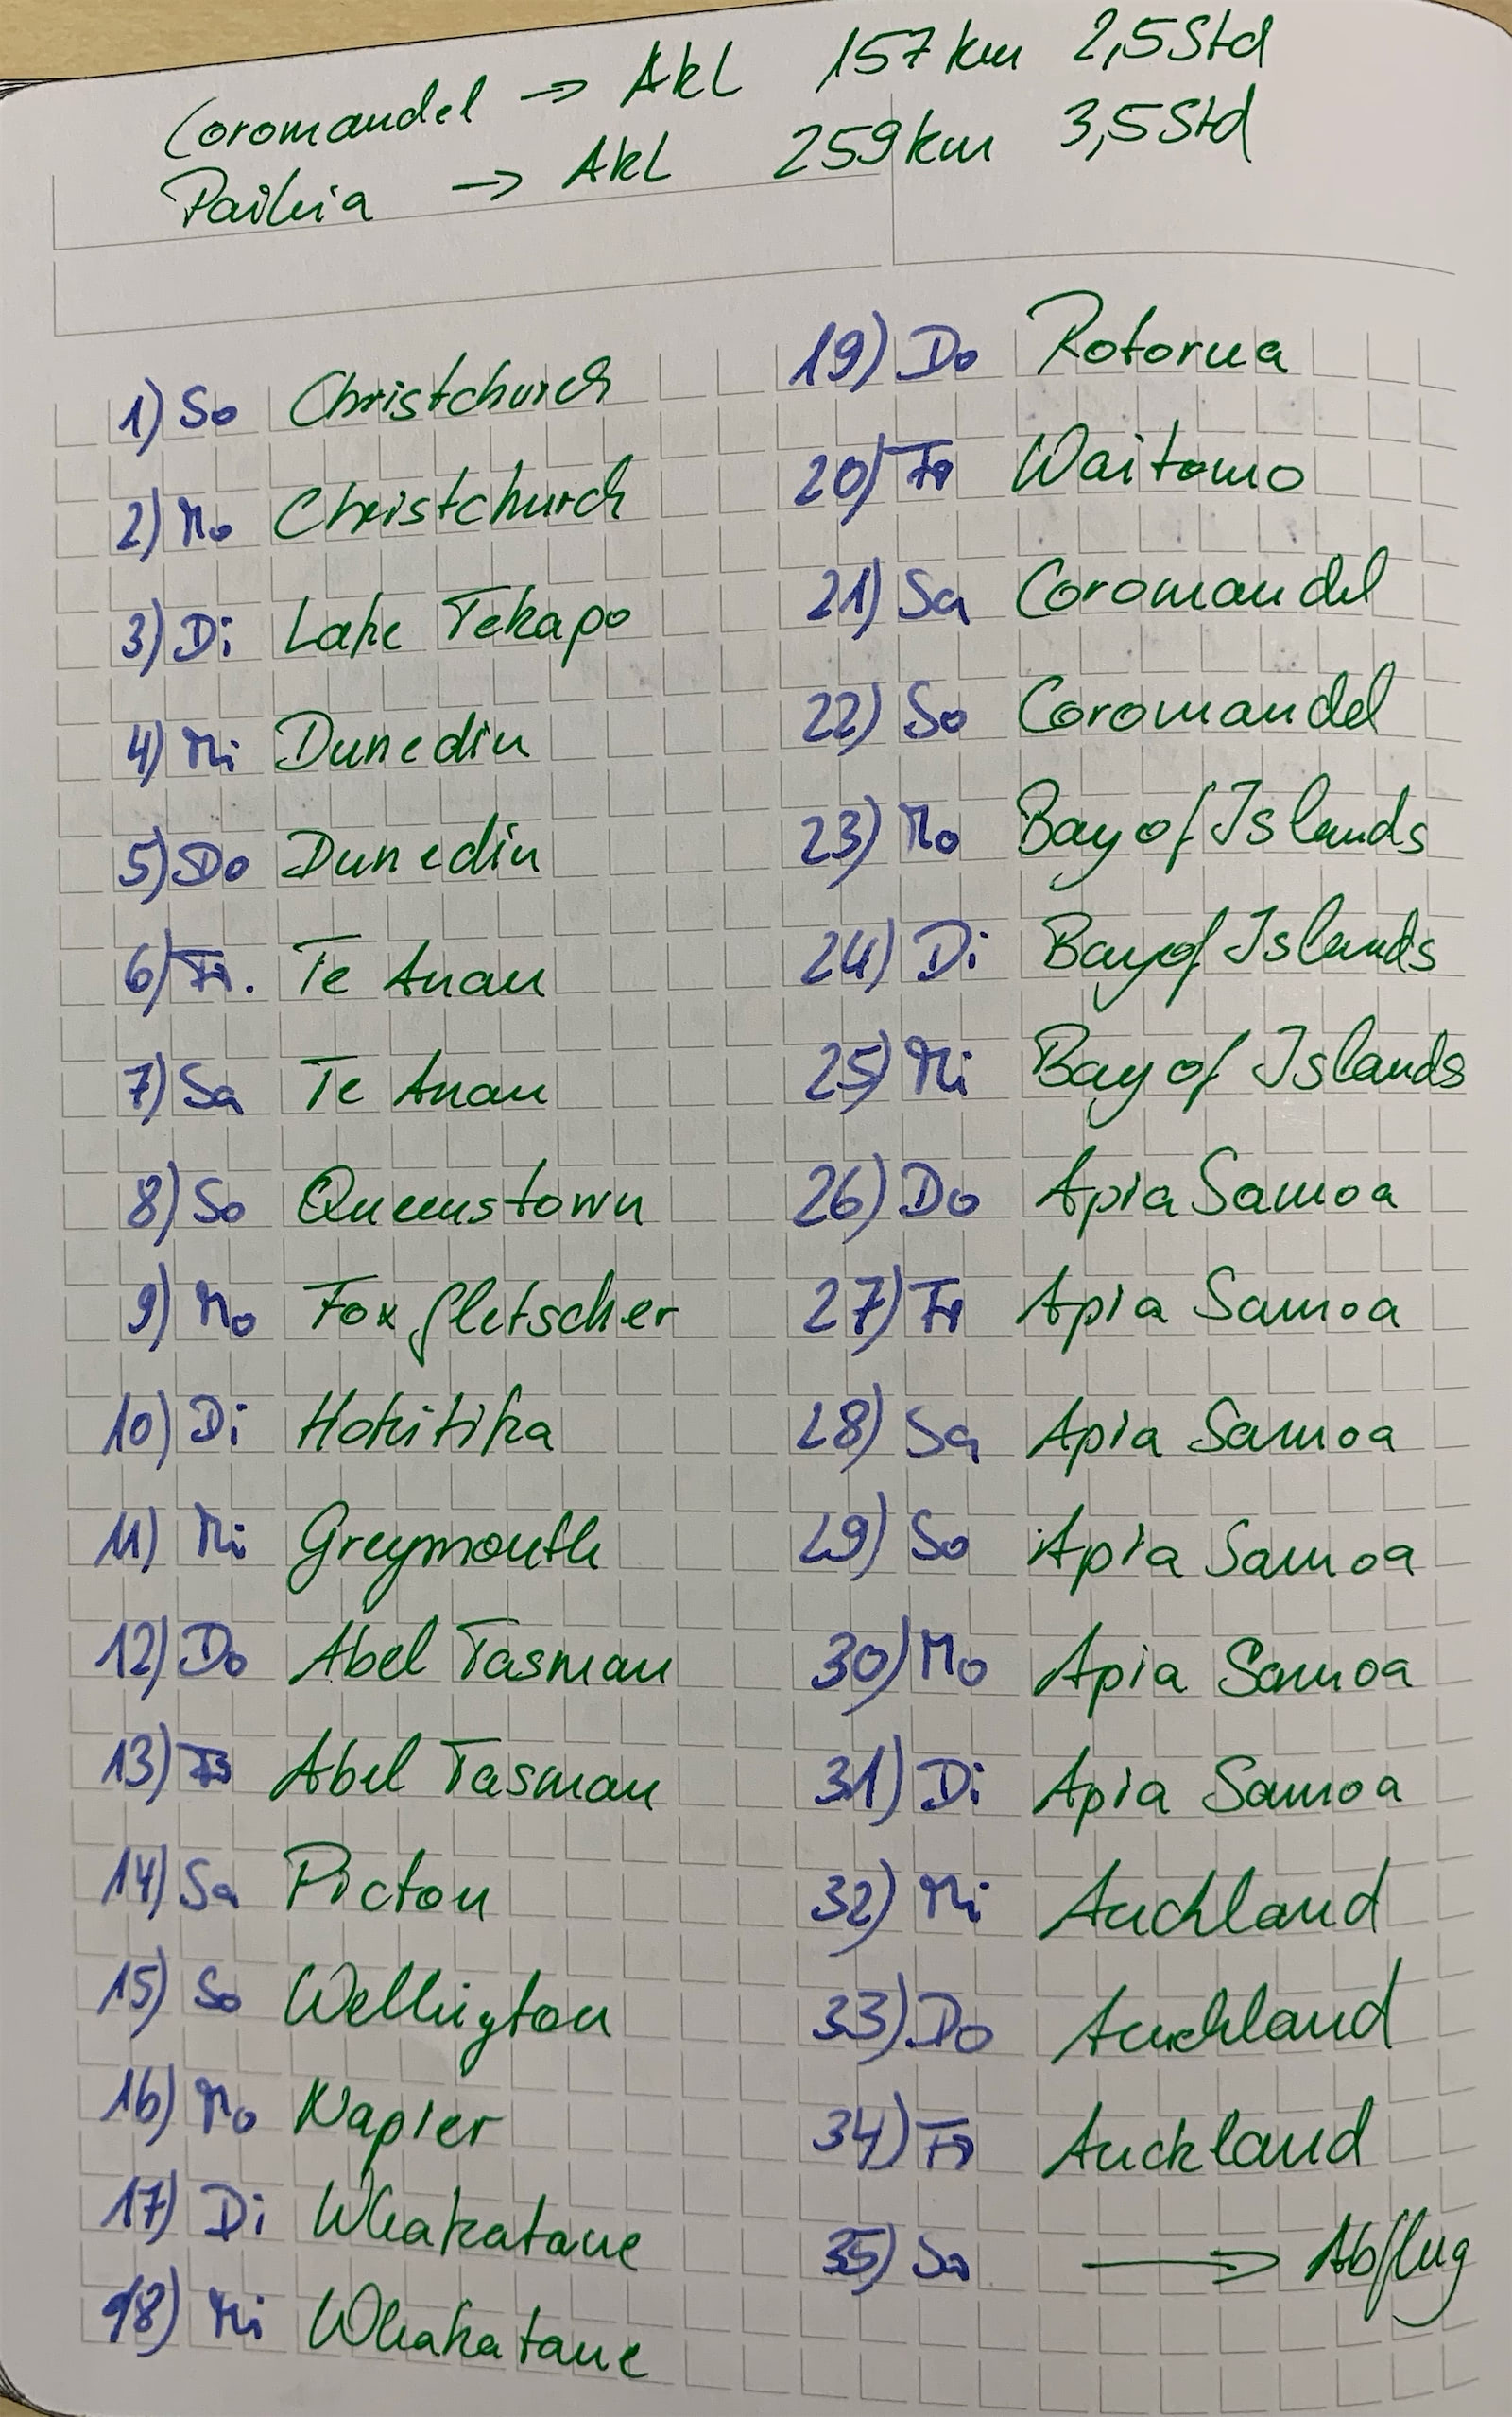 Coromandel → Akl 157 km 2,5 Std
Paihia → Akl 259 km 3,5 Std
1) So Christchurch
2) Mo Christchurch
3) Di Lake Tekapo
4) Mi Dunedin
5) Do Dunedin
6) Fr. Te Anau
7) Sa Te Anau
8) So Queenstown
9) Mo Fox gletscher
10) Di Hokitika
11) Mi Greymouth
12) Do Abel Tasman
13) Fr Abel Tasman
14) Sa Picton
15) So Wellington
16) Mo Napier
17) Di Whakatane
18) Mi Whakatane
19) Do Rotorua
20) Fr Waitomo
21) Sa Coromandel
22) So Coromandel
23) Mo Bay of Islands
24) Di Bay of Islands
25) Mi Bay of Islands
26) Do Apia Samoa
27) Fr Apia Samoa
28) Sa Apia Samoa
29) So Apia Samoa
30) Mo Apia Samoa
31) Di Apia Samoa
32) Mi Auckland
33) Do Auckland
34) Fr Auckland
35) Sa → Abflug